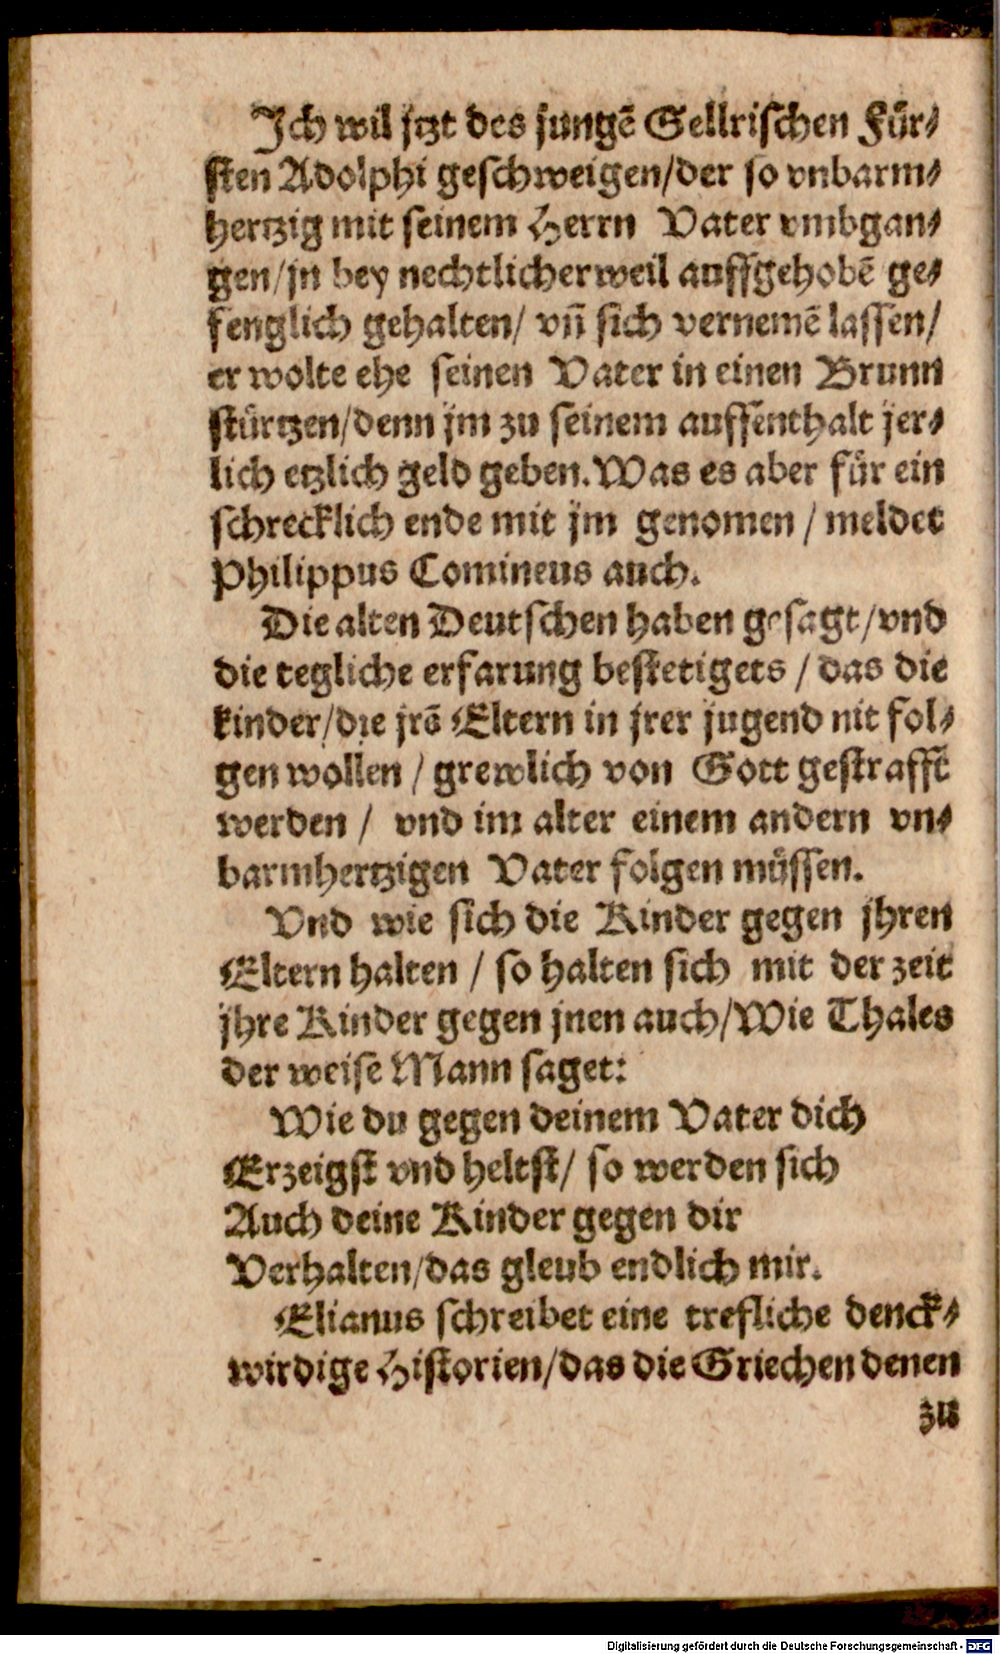 Ich wil jtzt des jungē Gellrischen Für⸗
sten Adolphi geschweigen/der so vnbarm⸗
hertzig mit seinem Herrn Vater vmbgan⸗
gen/jn bey nechtlicher weil auffgehobē ge⸗
fenglich gehalten/ vñ sich vernemē lassen/
er wolte ehe seinen Vater in einen Brunn
stürtzen/denn jm zu seinem auffenthalt jer⸗
lich etzlich geld geben. Was es aber für ein
schrecklich ende mit jm genomen / meldet
Philippus Comineus auch.
Die alten Deutschen haben gesagt/vnd
die tegliche erfarung bestetigets / das die
kinder/die jrē Eltern in jrer jugend nit fol⸗
gen wollen / grewlich von Gott gestrafft
werden / vnd im alter einem andern vn⸗
barmhertzigen Vater folgen müssen.
Vnd wie sich die Kinder gegen jhren
Eltern halten / so halten sich mit der zeit
jhre Kinder gegen jnen auch/Wie Thales
der weise Mann saget:
Wie du gegen deinem Vater dich
Erzeigst vnd heltst/ so werden sich
Auch deine Kinder gegen dir
Verhalten/das gleub endlich mir.
Elianus schreibet eine trefliche denck⸗
wirdige Historien/das die Griechen denen
zu
Digitalisierung gefördert durch die Deutsche Forschungsgemeinschaft - DFG